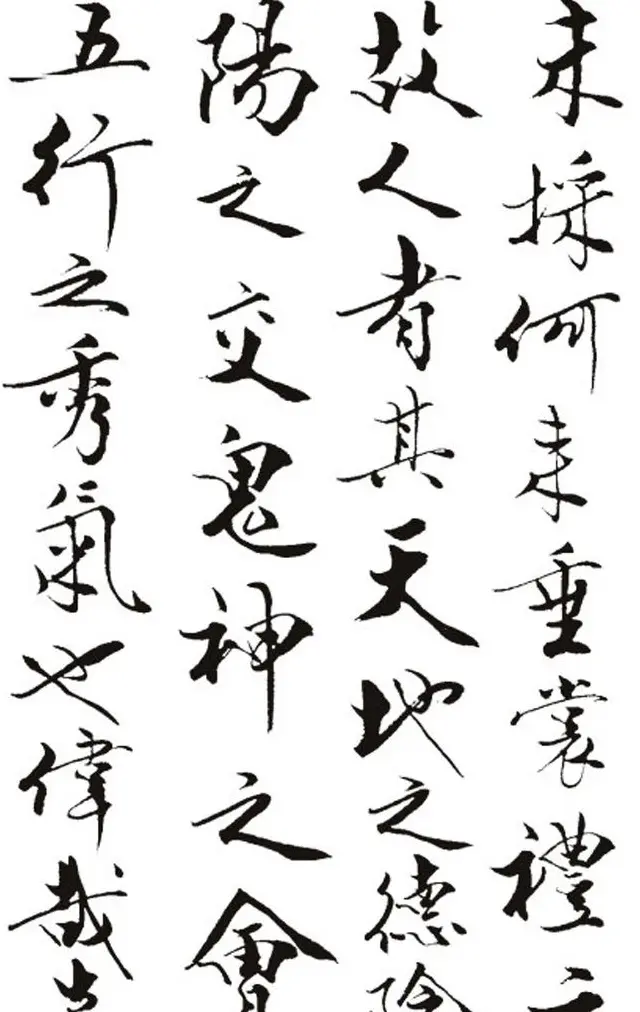 未採何未垂裳禮云
故人者其天地之德陰
陽之交鬼神之會
五行之秀氣也偉哉